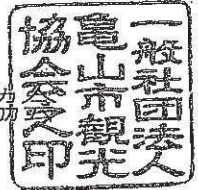 一般社団法人
亀山市観光
協会長之印